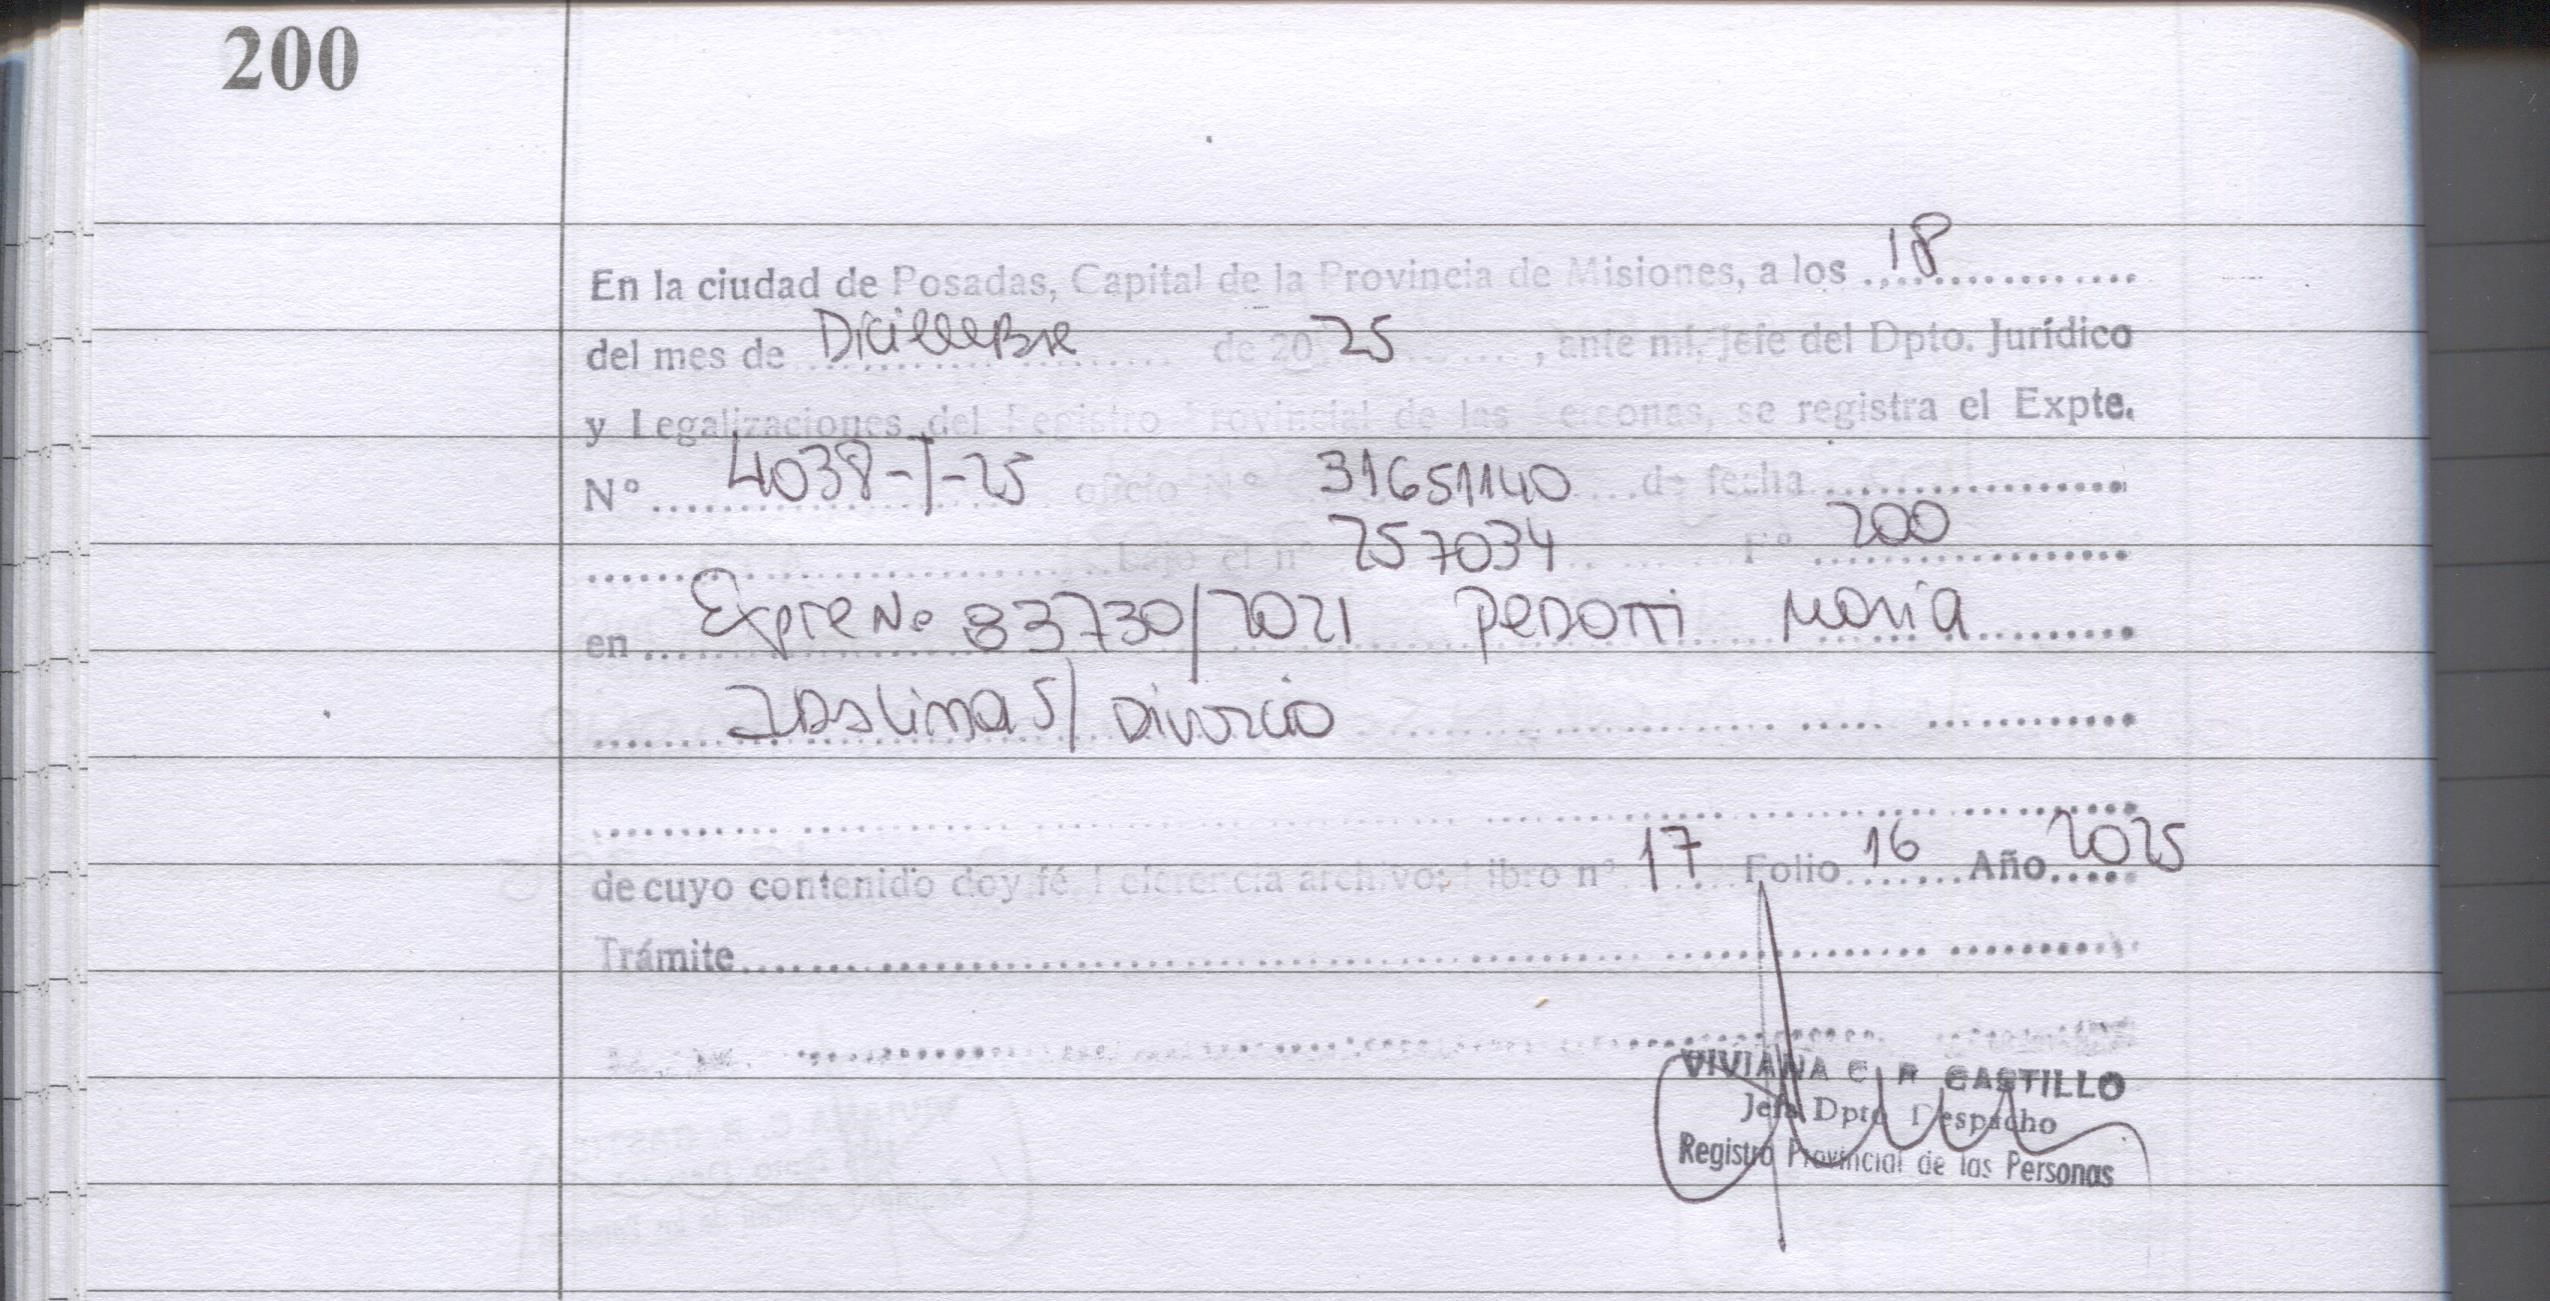 200
En la ciudad de Posadas, Capital de la Provincia de Misiones, a los 18
del mes de Diciembre de 2025, ante mi, Jefe del Dpto. Jurídico
y Legalizaciones del Registro Provincial de las Personas, se registra el Expte.
N° 4038-T-25 oficio N° 31651140 de fecha
bajo el n° 257034 F° 200
en Expte No 83730/2021 Pedotti Maria
S/ Divorcio
de cuyo contenido doy fé. Referencia archivo: Libro n° 17 Folio 16 Año 2025
Trámite
VIVIANA C. R. CASTILLO
Jefa Dpto Despacho
Registro Provincial de las Personas